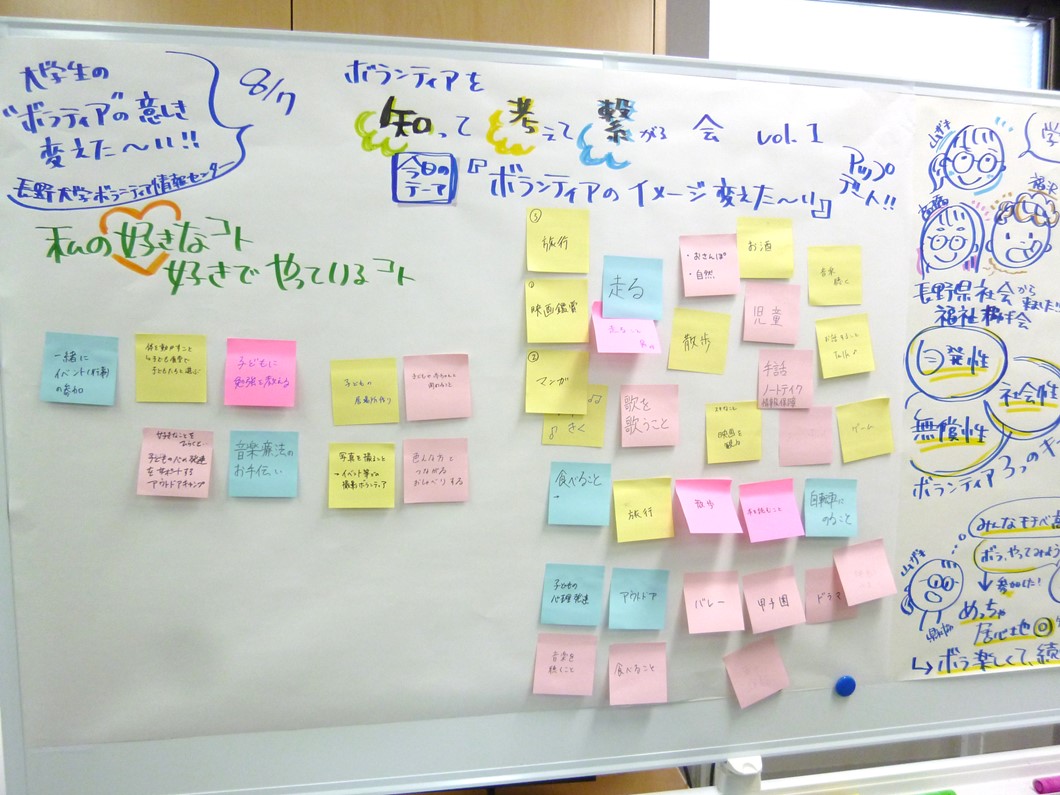 大学生の
"ボラティア"の意しき
変えた〜い!!
長野大学ボランティア情報センター
8/7
ボランティアを
知って 考えて 繋がる 会 vol.1
今日の
テーマ
『ボランティアのイメージ変えた〜い』
アップ
デート!!
私の好きなコト
好きでやっているコト
一緒に
イベント(行事)
の参加
体を動かすこと
子どもに
勉強を教える
子どもの
居場所作り
好きなことを
子どもの心の発達
をサポートする
アウトドアキャンプ
音楽療法の
お手伝い
写真を撮ること
→イベント等の
撮影ボランティア
色んな方と
つながる
おしゃべりする
③
旅行
①
映画鑑賞
②
マンガ
♪きく
走る
・おさんぽ
・自然
お酒
音楽
聴く
散歩
児童
お話すること
Talk♪
手話
ノートテイク
情報保障
歌を
歌うこと
好きなこと
映画を
観る
ゲーム
食べること
旅行
散歩
本を読むこと
自転車に
のること
子どもの
心理発達
アウトドア
バレー
甲子園
ドラマ
音楽を
聴くこと
食べること
山ざき
長野県社会
福祉協議会
から
来ました
自発性
社会性
無償性
ボランティア3つのキ
みんなモチベ高
ボラ、やってみよう
↓参加した!
めっちゃ
居心地◎
↳ボラ楽しくて、続